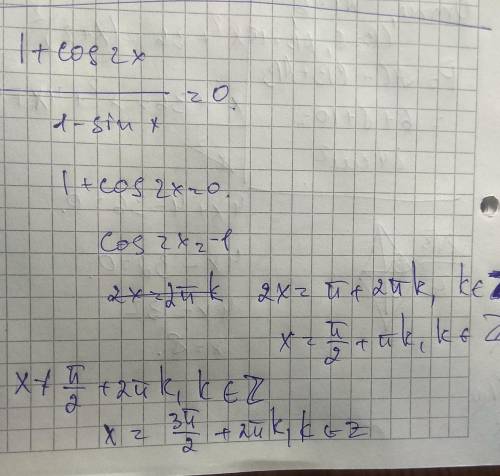 1 + cos 2x
—————— = 0.
1 - sin x
1 + cos 2x = 0.
cos 2x = -1.
2x = 2πk 2x = π + 2πk, k ∈ Z
x = π/2 + πk, k ∈ Z
x ≠ π/2 + 2πk, k ∈ Z
x = 3π/2 + 2πk, k ∈ Z